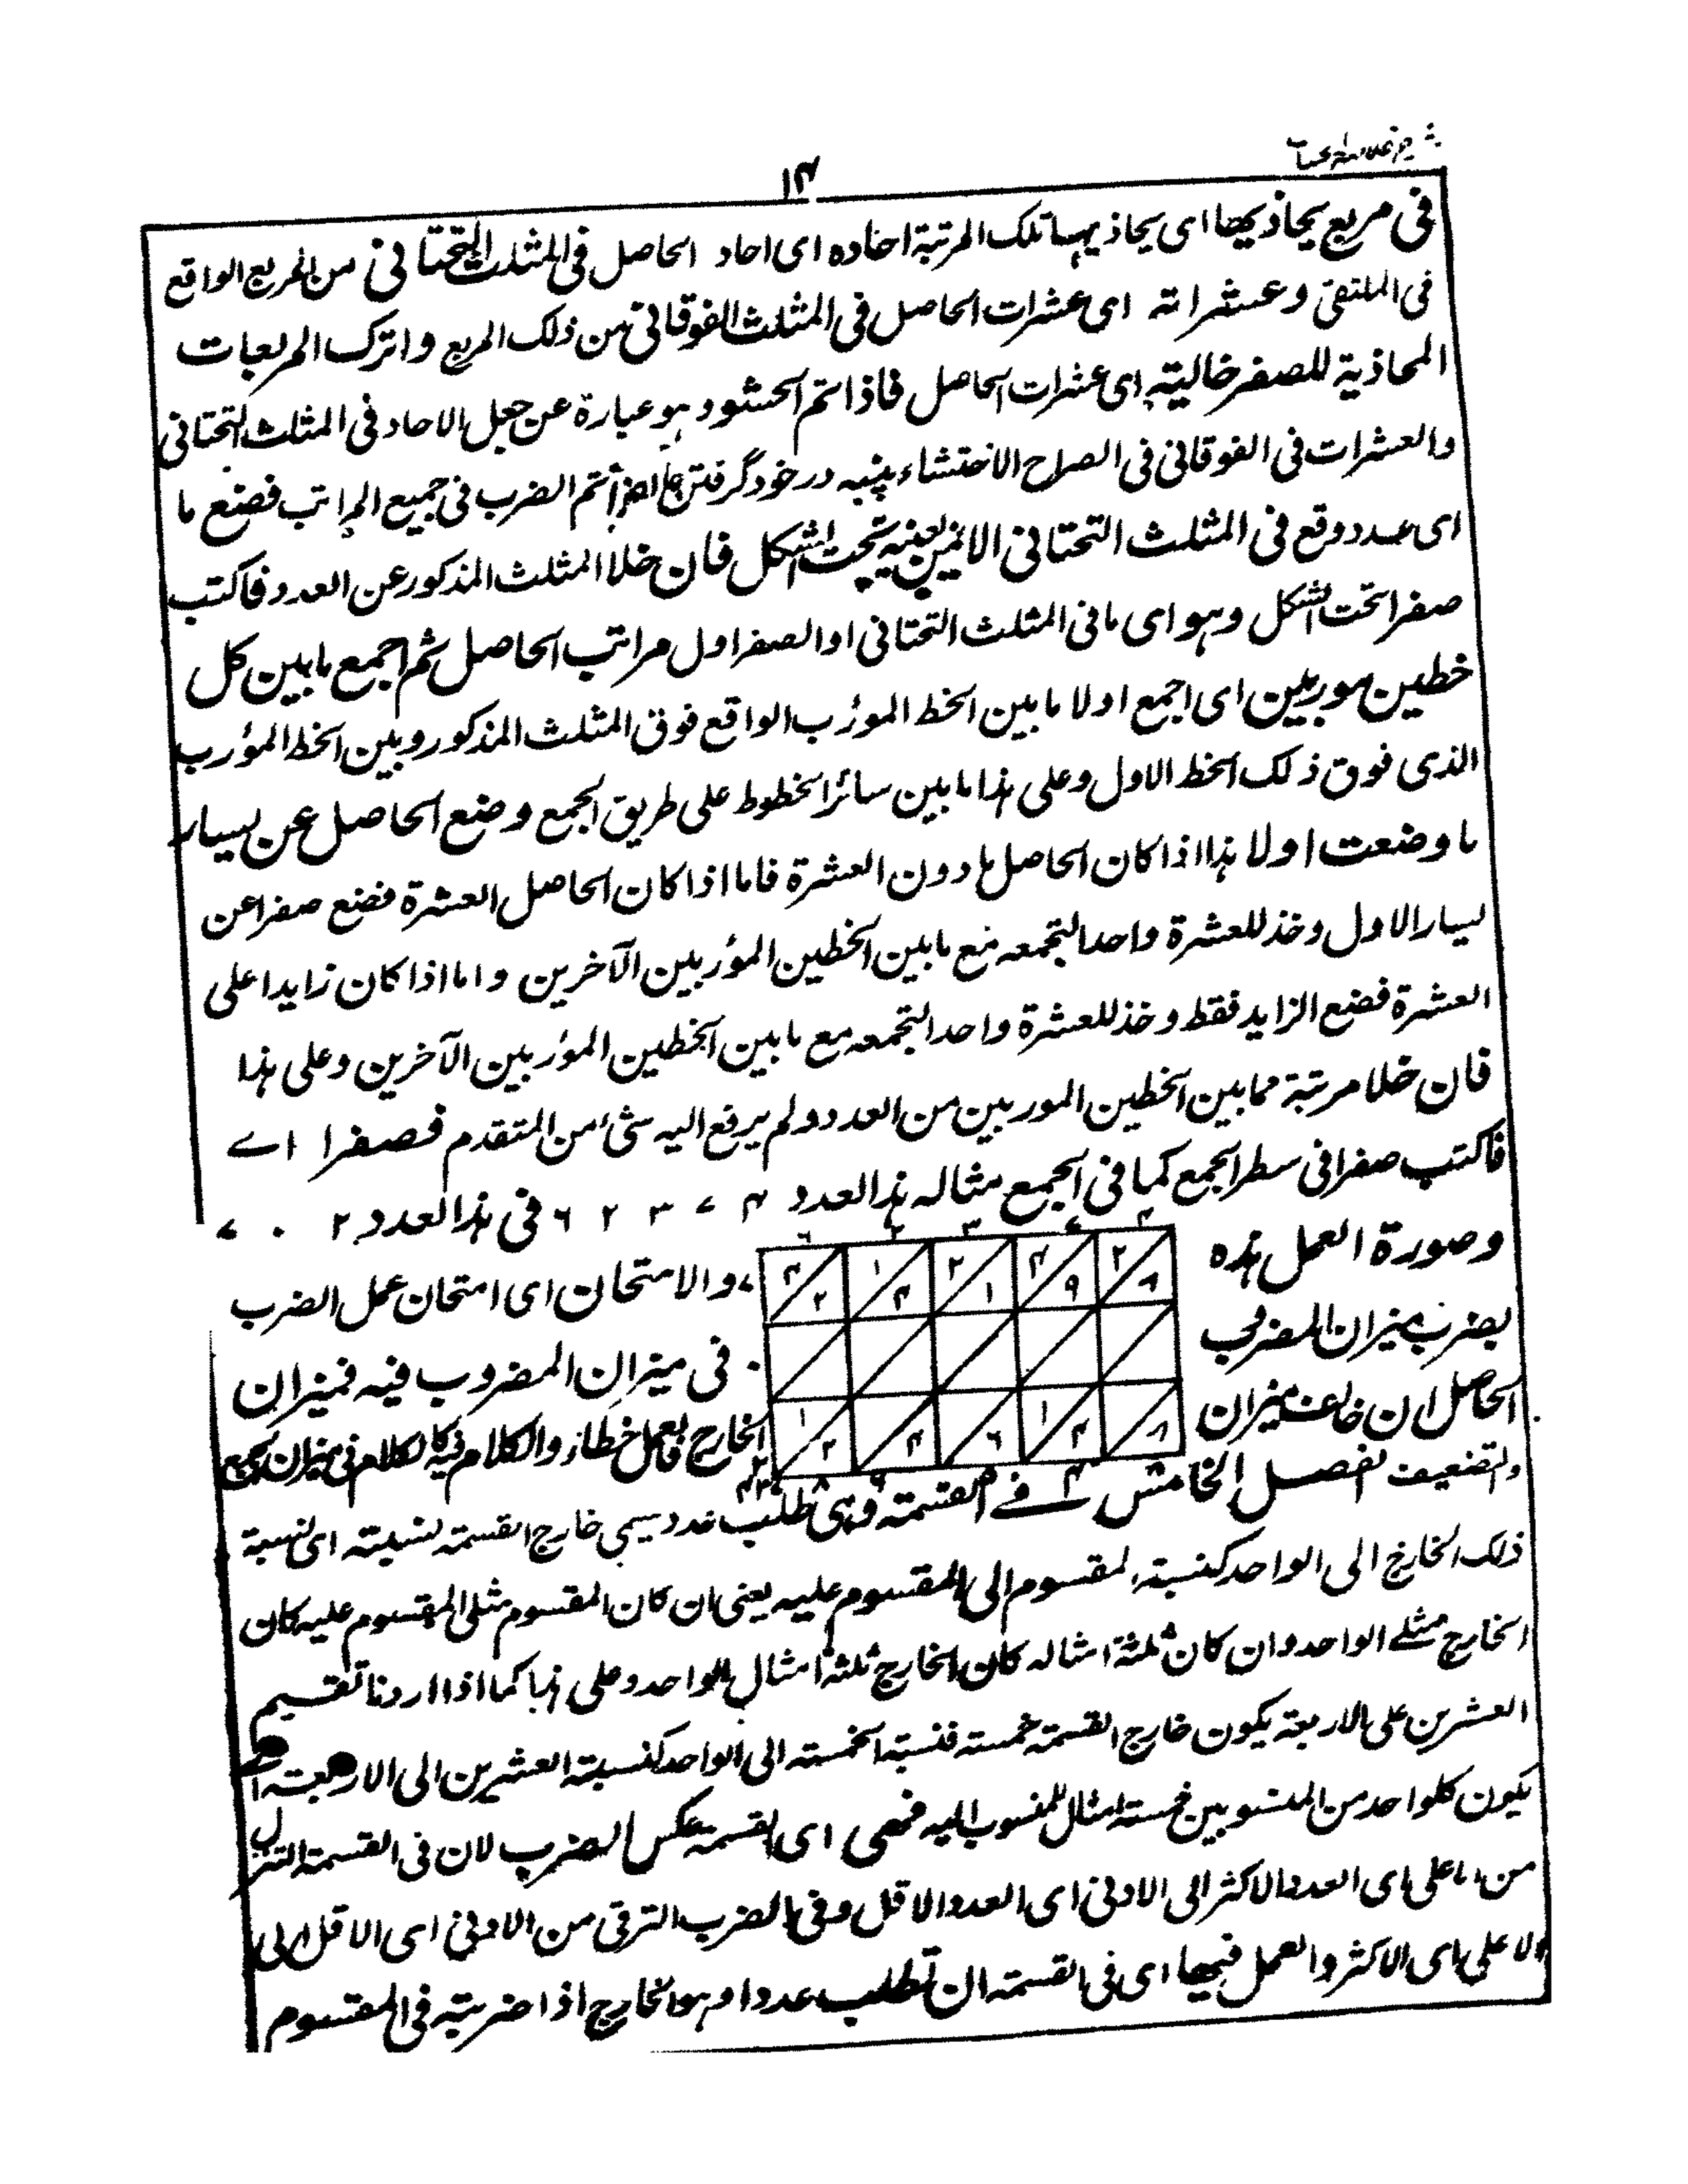 شرح خلاصة الحساب
١٤
فى مربع يحاذيهما اى يحاذيهما تلك المرتبة احاده اى احاد الحاصل فى المثلث التحتانى من المربع الواقع
فى الملتقى وعشراته اى عشرات الحاصل فى المثلث الفوقانى من ذلك المربع واترك المربعات
المحاذية للصفر خالية اى عشرات الحاصل فاذا تم الحشو وهو عبارة عن جعل الاحاد فى المثلث التحتانى
والعشرات فى الفوقانى فى الصراح الاحتشاء پنبه در خود گرفتن تم الضرب فى جميع المراتب فضع ما
اى عدد وقع فى المثلث التحتانى الايمن بعينه تحت الشكل فان خلا المثلث المذكور عن العدد فاكتب
صفرا تحت الشكل وهو اى ما فى المثلث التحتانى او الصفر اول مراتب الحاصل ثم اجمع ما بين كل
خطين موربين اى اجمع اولا ما بين الخط المورب الواقع فوق المثلث المذكور وبين الخط المورب
الذى فوق ذلك الخط الاول وعلى هذا ما بين سائر الخطوط على طريق الجمع وضع الحاصل عن يسار
ما وضعت اولا هذا اذا كان الحاصل ما دون العشرة فاما اذا كان الحاصل العشرة فضع صفرا عن
يسار الاول وخذ للعشرة واحدا لتجمعه مع ما بين الخطين المؤربين الآخرين واما اذا كان زايدا على
العشرة فضع الزايد فقط وخذ للعشرة واحدا لتجمعه مع ما بين الخطين المؤربين الآخرين وعلى هذا
فان خلا مرتبة مما بين الخطين الموربين من العدد ولم يرفع اليه شئ من المتقدم فصفرا اے
فاكتب صفرا فى سطر الجمع كما فى الجمع مثاله هذا العدد ۴ ۷ ۳ ۲ ۶ فى هذا العدد ۲ ۰ ۷
وصورة العمل هذه
۶ ۲ ۳ ۷ ۴
۷ ۴ ۲ ۱ ۴ ۲ ۱ ۴ ۹ ۲ ۸
۰
۱ ۲ ۴ ۶ ۱ ۴ ۸
والامتحان اى امتحان عمل الضرب
بضرب ميزان المضروب
فى ميزان المضروب فيه فميزان
الحاصل ان خالف ميزان
الخارج فالعمل خطاء والكلام فيه كالكلام فى ميزان الجمع
والتضعيف الفصل الخامس فے القسمة وهى طلب عدد يسمى خارج القسمة نسبته اى نسبة
ذلك الخارج الى الواحد كنسبة المقسوم الى المقسوم عليه يعنى ان كان المقسوم مثلى المقسوم عليه كان
الخارج مثلے الواحد وان كان ثلثة امثاله كان الخارج ثلثة امثال الواحد وعلى هذا كما اذا اردنا تقسيم
العشرين على الاربعة يكون خارج القسمة خمسة فنسبة الخمسة الى الواحد كنسبة العشرين الى الاربعة
يكون كلواحد من المنسوبين خمسة امثال المنسوب اليه فهى اى القسمة عكس الضرب لان فى القسمة التنزل
من الاعلى اى العدد الاكثر الى الادنى اى العدد الاقل وفى الضرب الترقى من الادنى اى الاقل الى
الاعلى اى الاكثر والعمل فيها اى فى القسمة ان تطلب عددا وهو الخارج اذا ضربته فى المقسوم